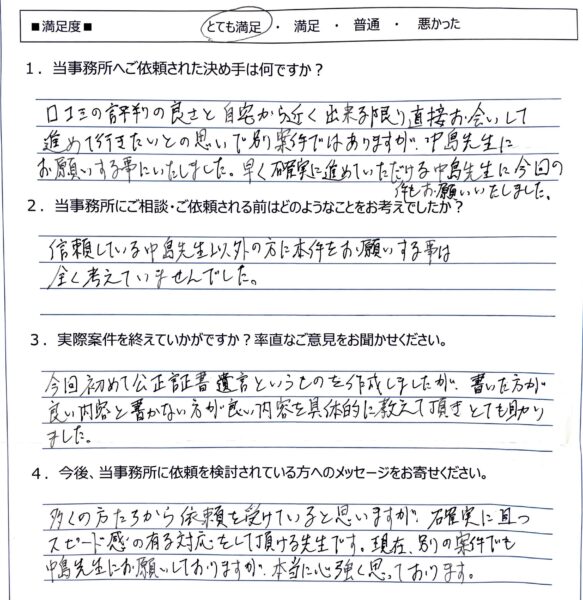 ■満足度■ とても満足 ・ 満足 ・ 普通 ・ 悪かった
1．当事務所へご依頼された決め手は何ですか？
口コミの評判の良さと自宅から近く出来る限り直接お会いして
進めて行きたいとの思いで別案件ではありますが、中島先生に
お願いする事にいたしました。早く確実に進めていただける中島先生に今回の
件もお願いいたしました。
2．当事務所にご相談・ご依頼される前はどのようなことをお考えでしたか？
信頼している中島先生以外の方に本件をお願いする事は
全く考えていませんでした。
3．実際案件を終えていかがですか？率直なご意見をお聞かせください。
今回初めて公正証書遺言というものを作成しましたが、書いた方が
良い内容と書かない方が良い内容を具体的に教えて頂きとても助かり
ました。
4．今後、当事務所に依頼を検討されている方へのメッセージをお寄せください。
多くの方たちから依頼を受けていると思いますが、確実に且つ
スピード感の有る対応をして頂ける先生です。現在、別の案件でも
中島先生にお願いしておりますが、本当に心強く思っております。